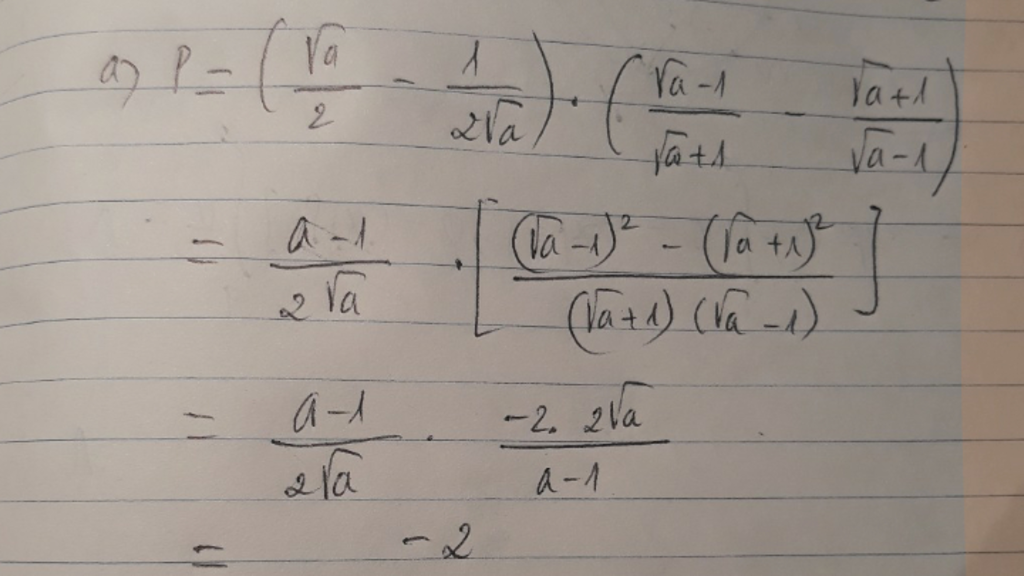 a) P = (√a/2 - 1/(2√a)) · ((√a-1)/(√a+1) - (√a+1)/(√a-1))
= (a-1)/(2√a) · [((√a-1)² - (√a+1)²)/((√a+1)(√a-1))]
= (a-1)/(2√a) · (-2. 2√a)/(a-1)
= -2